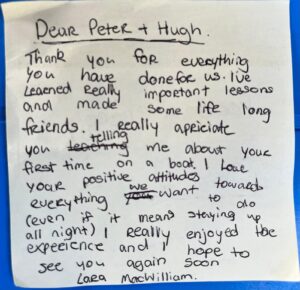 Dear Peter + Hugh.
Thank you for everything
you have done for us. I've
learned really important lessons
and made some life long
friends. I really apriciate
you telling me about your
first time on a boat. I love
your positive attitudes towards
everything we want to do
(even if it means staying up
all night) I really enjoyed the
experience and I hope to
see you again soon
Lara MacWilliam.